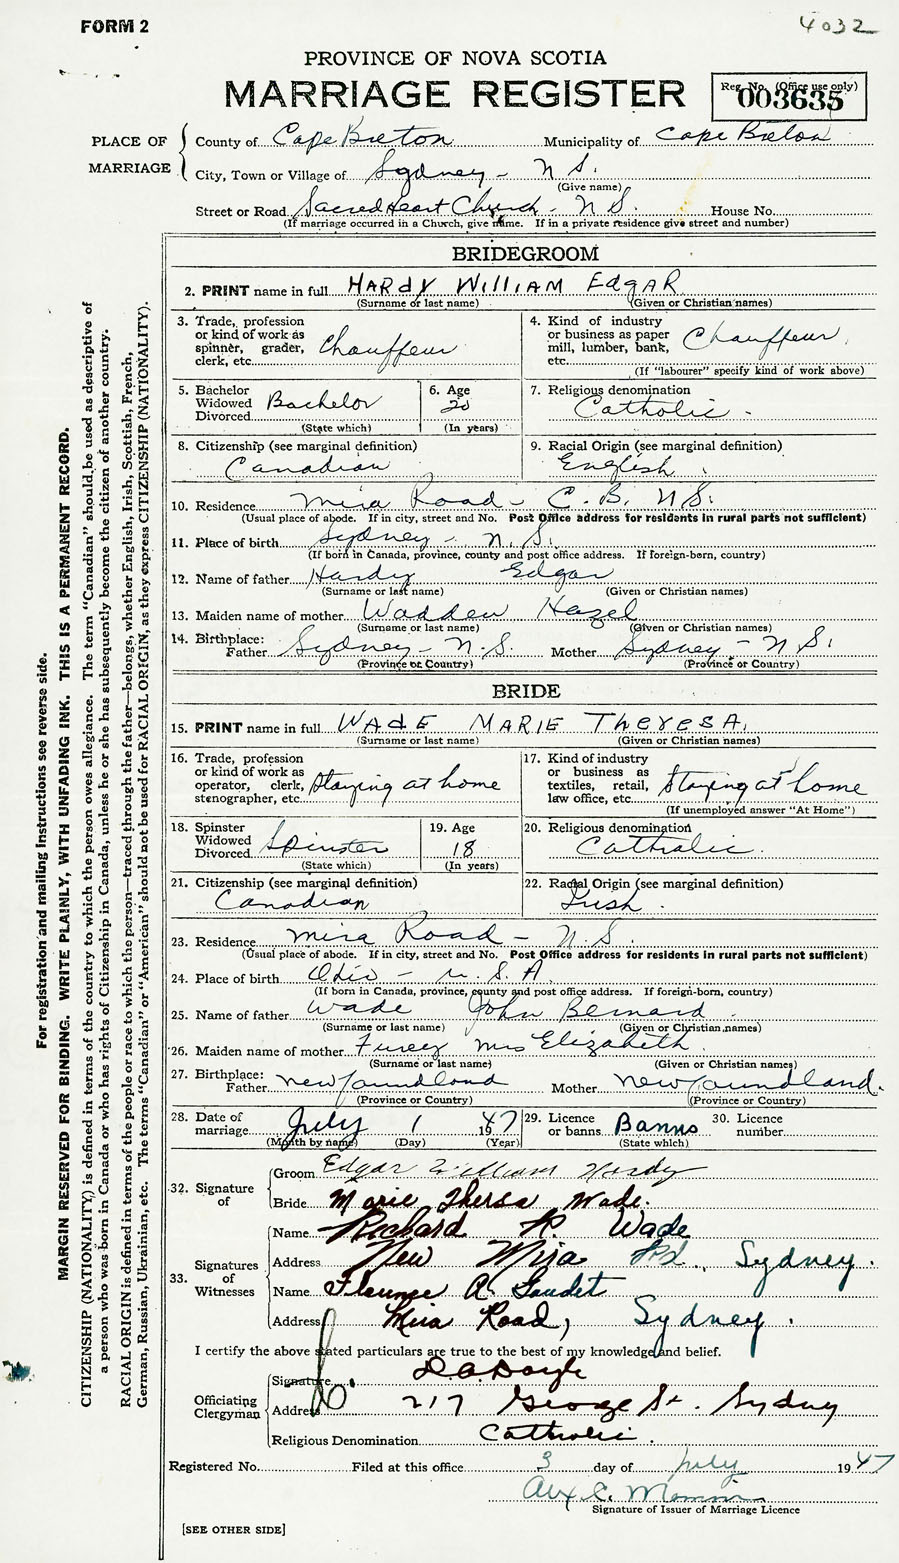 FORM 2
4032
PROVINCE OF NOVA SCOTIA
MARRIAGE REGISTER
Reg. No. (Office use only)
003635
PLACE OF MARRIAGE
County of Cape Breton Municipality of Cape Breton
City, Town or Village of Sydney - N S.
(Give name)
Street or Road Sacred Heart Church - N S. House No.
(If marriage occurred in a Church, give name. If in a private residence give street and number)
BRIDEGROOM
2. PRINT name in full HARDY WILLIAM EDGAR
(Surname or last name) (Given or Christian names)
3. Trade, profession or kind of work as spinner, grader, clerk, etc. Chauffeur
4. Kind of industry or business as paper mill, lumber, bank, etc. Chauffeur
(If "labourer" specify kind of work above)
5. Bachelor Widowed Divorced Bachelor
(State which)
6. Age 20
(In years)
7. Religious denomination Catholic -
8. Citizenship (see marginal definition) Canadian
9. Racial Origin (see marginal definition) English
10. Residence Mira Road - C. B. N S.
(Usual place of abode. If in city, street and No. Post Office address for residents in rural parts not sufficient)
11. Place of birth Sydney - N. S.
(If born in Canada, province, county and post office address. If foreign-born, country)
12. Name of father Hardy Edgar
(Surname or last name) (Given or Christian names)
13. Maiden name of mother Wadden Hazel
(Surname or last name) (Given or Christian names)
14. Birthplace: Father Sydney - N. S. Mother Sydney - N S.
(Province or Country) (Province or Country)
BRIDE
15. PRINT name in full WADE MARIE THERESA.
(Surname or last name) (Given or Christian names)
16. Trade, profession or kind of work as operator, clerk, stenographer, etc. Staying at home
17. Kind of industry or business as textiles, retail, law office, etc. Staying at home
(If unemployed answer "At Home")
18. Spinster Widowed Divorced Spinster
(State which)
19. Age 18
(In years)
20. Religious denomination Catholic.
21. Citizenship (see marginal definition) Canadian
22. Racial Origin (see marginal definition) Irish.
23. Residence Mira Road - N. S.
(Usual place of abode. If in city, street and No. Post Office address for residents in rural parts not sufficient)
24. Place of birth - U. S. A.
(If born in Canada, province, county and post office address. If foreign-born, country)
25. Name of father Wade John Bernard
(Surname or last name) (Given or Christian names)
26. Maiden name of mother Furey Mrs Elizabeth
(Surname or last name) (Given or Christian names)
27. Birthplace: Father Newfoundland Mother Newfoundland.
(Province or Country) (Province or Country)
28. Date of marriage July 1 1947
(Month by name) (Day) (Year)
29. Licence or banns Banns
(State which)
30. Licence number
32. Signature of
Groom Edgar William Hardy
Bride Marie Thersa Wade.
33. Signatures of Witnesses
Name Richard P. Wade
Address New Mira Rd., Sydney.
Name Florence A. Gaudet
Address Mira Road, Sydney.
I certify the above stated particulars are true to the best of my knowledge and belief.
Officiating Clergyman
Signature D. A. Doyle
Address 217 George St. Sydney
Religious Denomination Catholic.
Registered No. Filed at this office 3 day of July 1947
Alex C.
Signature of Issuer of Marriage Licence
[SEE OTHER SIDE]
For registration and mailing instructions see reverse side.
MARGIN RESERVED FOR BINDING. WRITE PLAINLY, WITH UNFADING INK. THIS IS A PERMANENT RECORD.
CITIZENSHIP (NATIONALITY) is defined in terms of the country to which the person owes allegiance. The term "Canadian" should be used as descriptive of
a person who was born in Canada or who has rights of Citizenship in Canada, unless he or she has subsequently become the citizen of another country.
RACIAL ORIGIN is defined in terms of the people or race to which the person—traced through the father—belongs, whether English, Irish, Scottish, French,
German, Russian, Ukrainian, etc. The terms "Canadian" or "American" should not be used for RACIAL ORIGIN, as they express CITIZENSHIP (NATIONALITY).